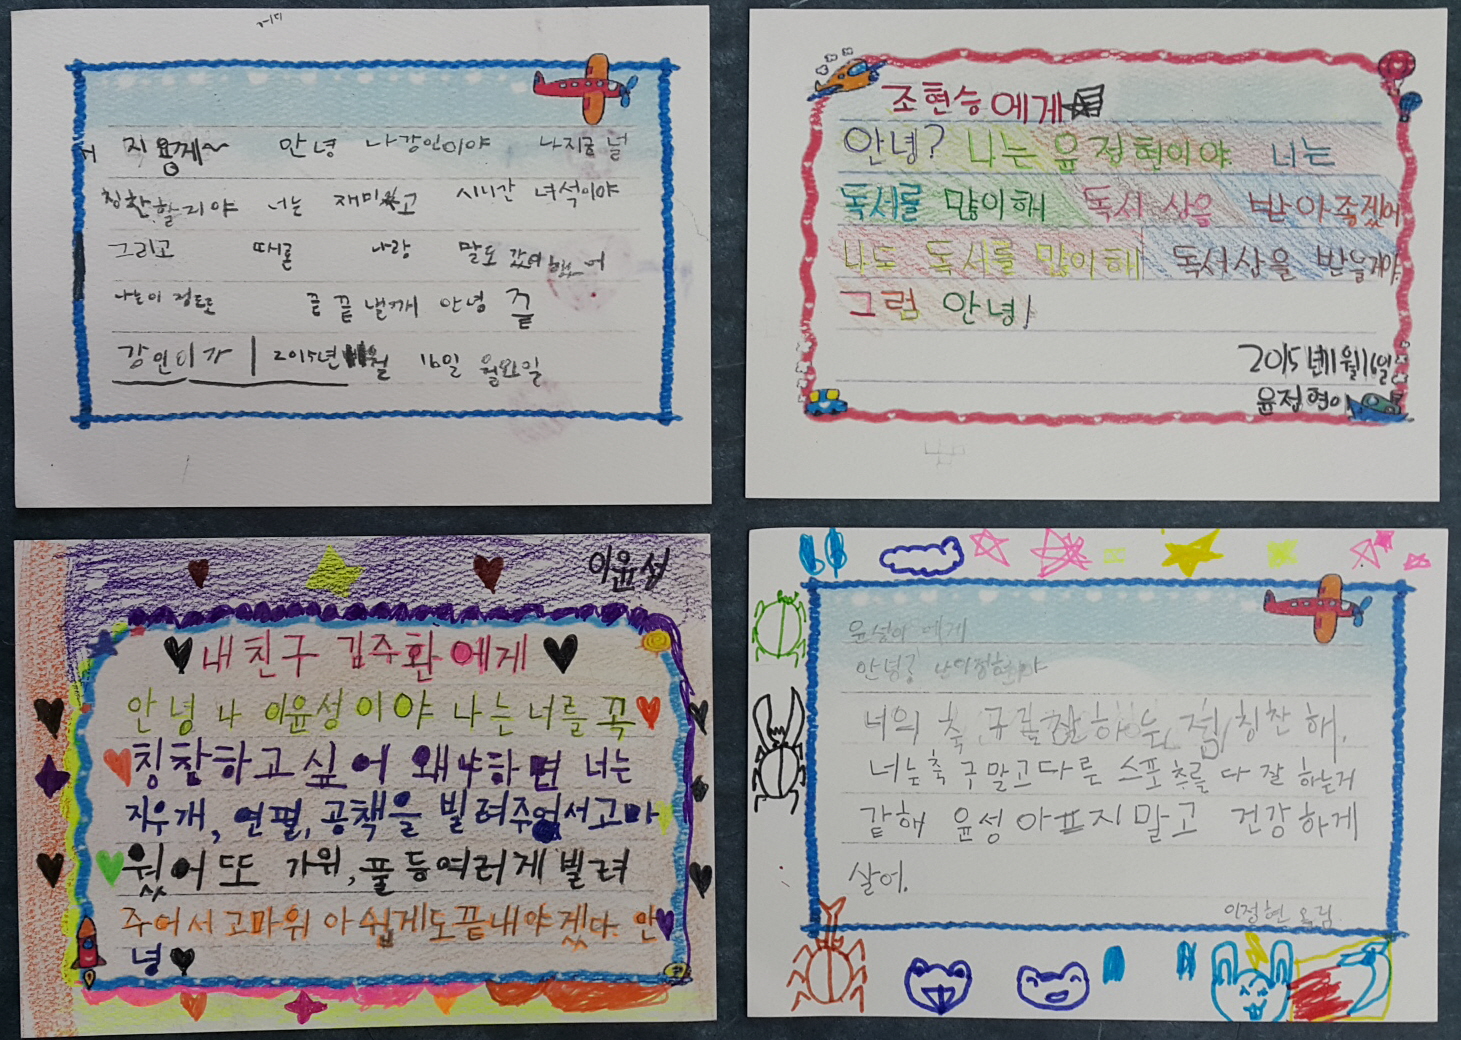 지용께~ 안녕 나강인이야 나지금 널
칭찬할꺼야 너는 재미있고 녀석이야
그리고 때론 나랑 말도
나는이 정도로 끝낼께 안녕
강인이가 2015년 11월 16일 월요일
조현승에게
안녕? 나는 윤정현이야 너는
독서를 많이해 독서 상을 받아좋겠어
나도 독서를 많이해 독서상을 받을거야
그럼 안녕!
2015년11월16일
윤정현이
이윤성
내친구 김주환에게
안녕 나 이윤성이야 나는너를 꼭
칭찬하고싶어 왜냐하면 너는
지우개, 연필, 공책을 빌려주었서고마
웠어또 가위,풀등여러게빌려
주어서고마워 아쉽게도끝내야겠다 안
녕
윤성아 에게
안녕? 난이정현이야
너의 축구를잘하는 점칭찬 해.
너는축구말고다른 스포츠를 다 잘 하는거
같해 윤성아프지말고 건강하게
살어.
이정현 올림